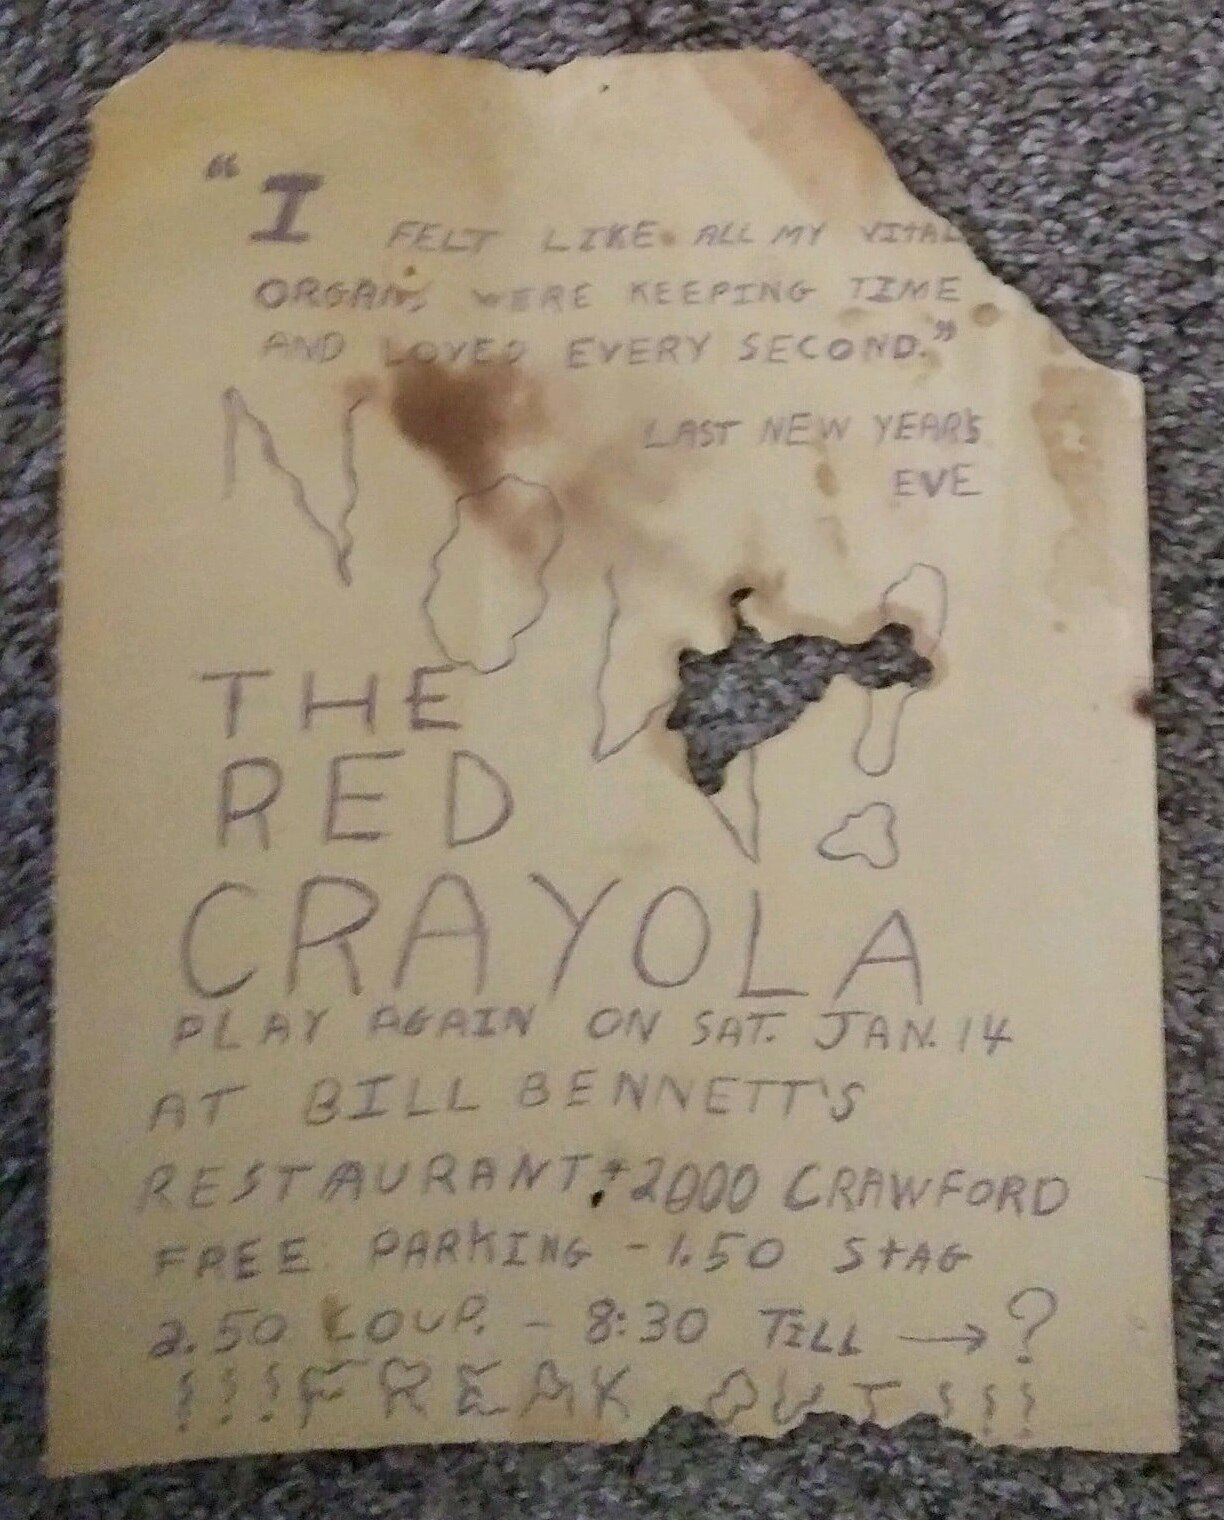 “I FELT LIKE ALL MY VITAL
ORGANS WERE KEEPING TIME
AND LOVED EVERY SECOND.”
LAST NEW YEARS
EVE
NOW!
THE
RED
CRAYOLA
PLAY AGAIN ON SAT. JAN. 14
AT BILL BENNETT'S
RESTAURANT 2000 CRAWFORD
FREE PARKING - 1.50 STAG
2.50 COUP. - 8:30 TILL → ?
!!!FREAK OUT!!!